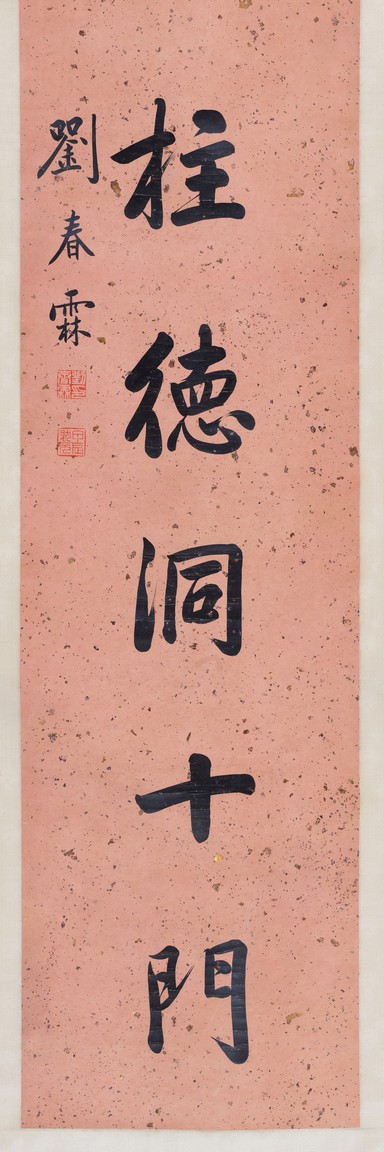 柱德洞十門
劉春霖